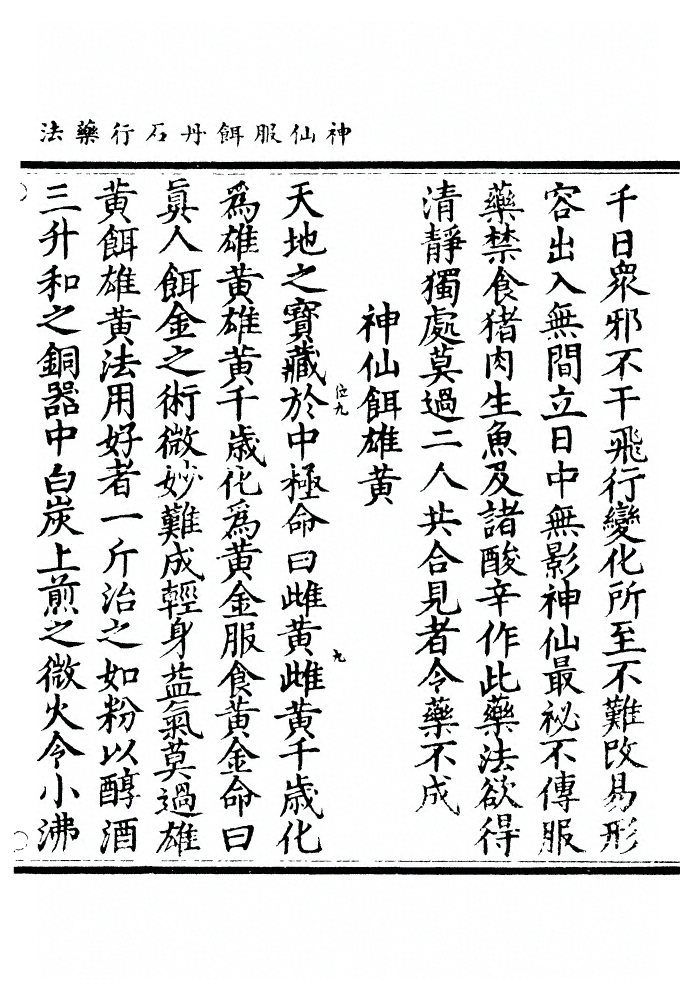 神仙服餌丹石行藥法
千日衆邪不干飛行變化所至不難改易形
容出入無間立日中無影神仙最祕不傳服
藥禁食猪肉生魚及諸酸辛作此藥法欲得
清靜獨處莫過二人共合見者令藥不成
神仙餌雄黃
天地之寶藏於中極命曰雌黃雌黃千歲化
爲雄黃雄黃千歲化爲黃金服食黃金命曰
眞人餌金之術微妙難成輕身益氣莫過雄
黃餌雄黃法用好者一斤治之如粉以醇酒
三升和之銅器中白炭上煎之微火令小沸
位九
九